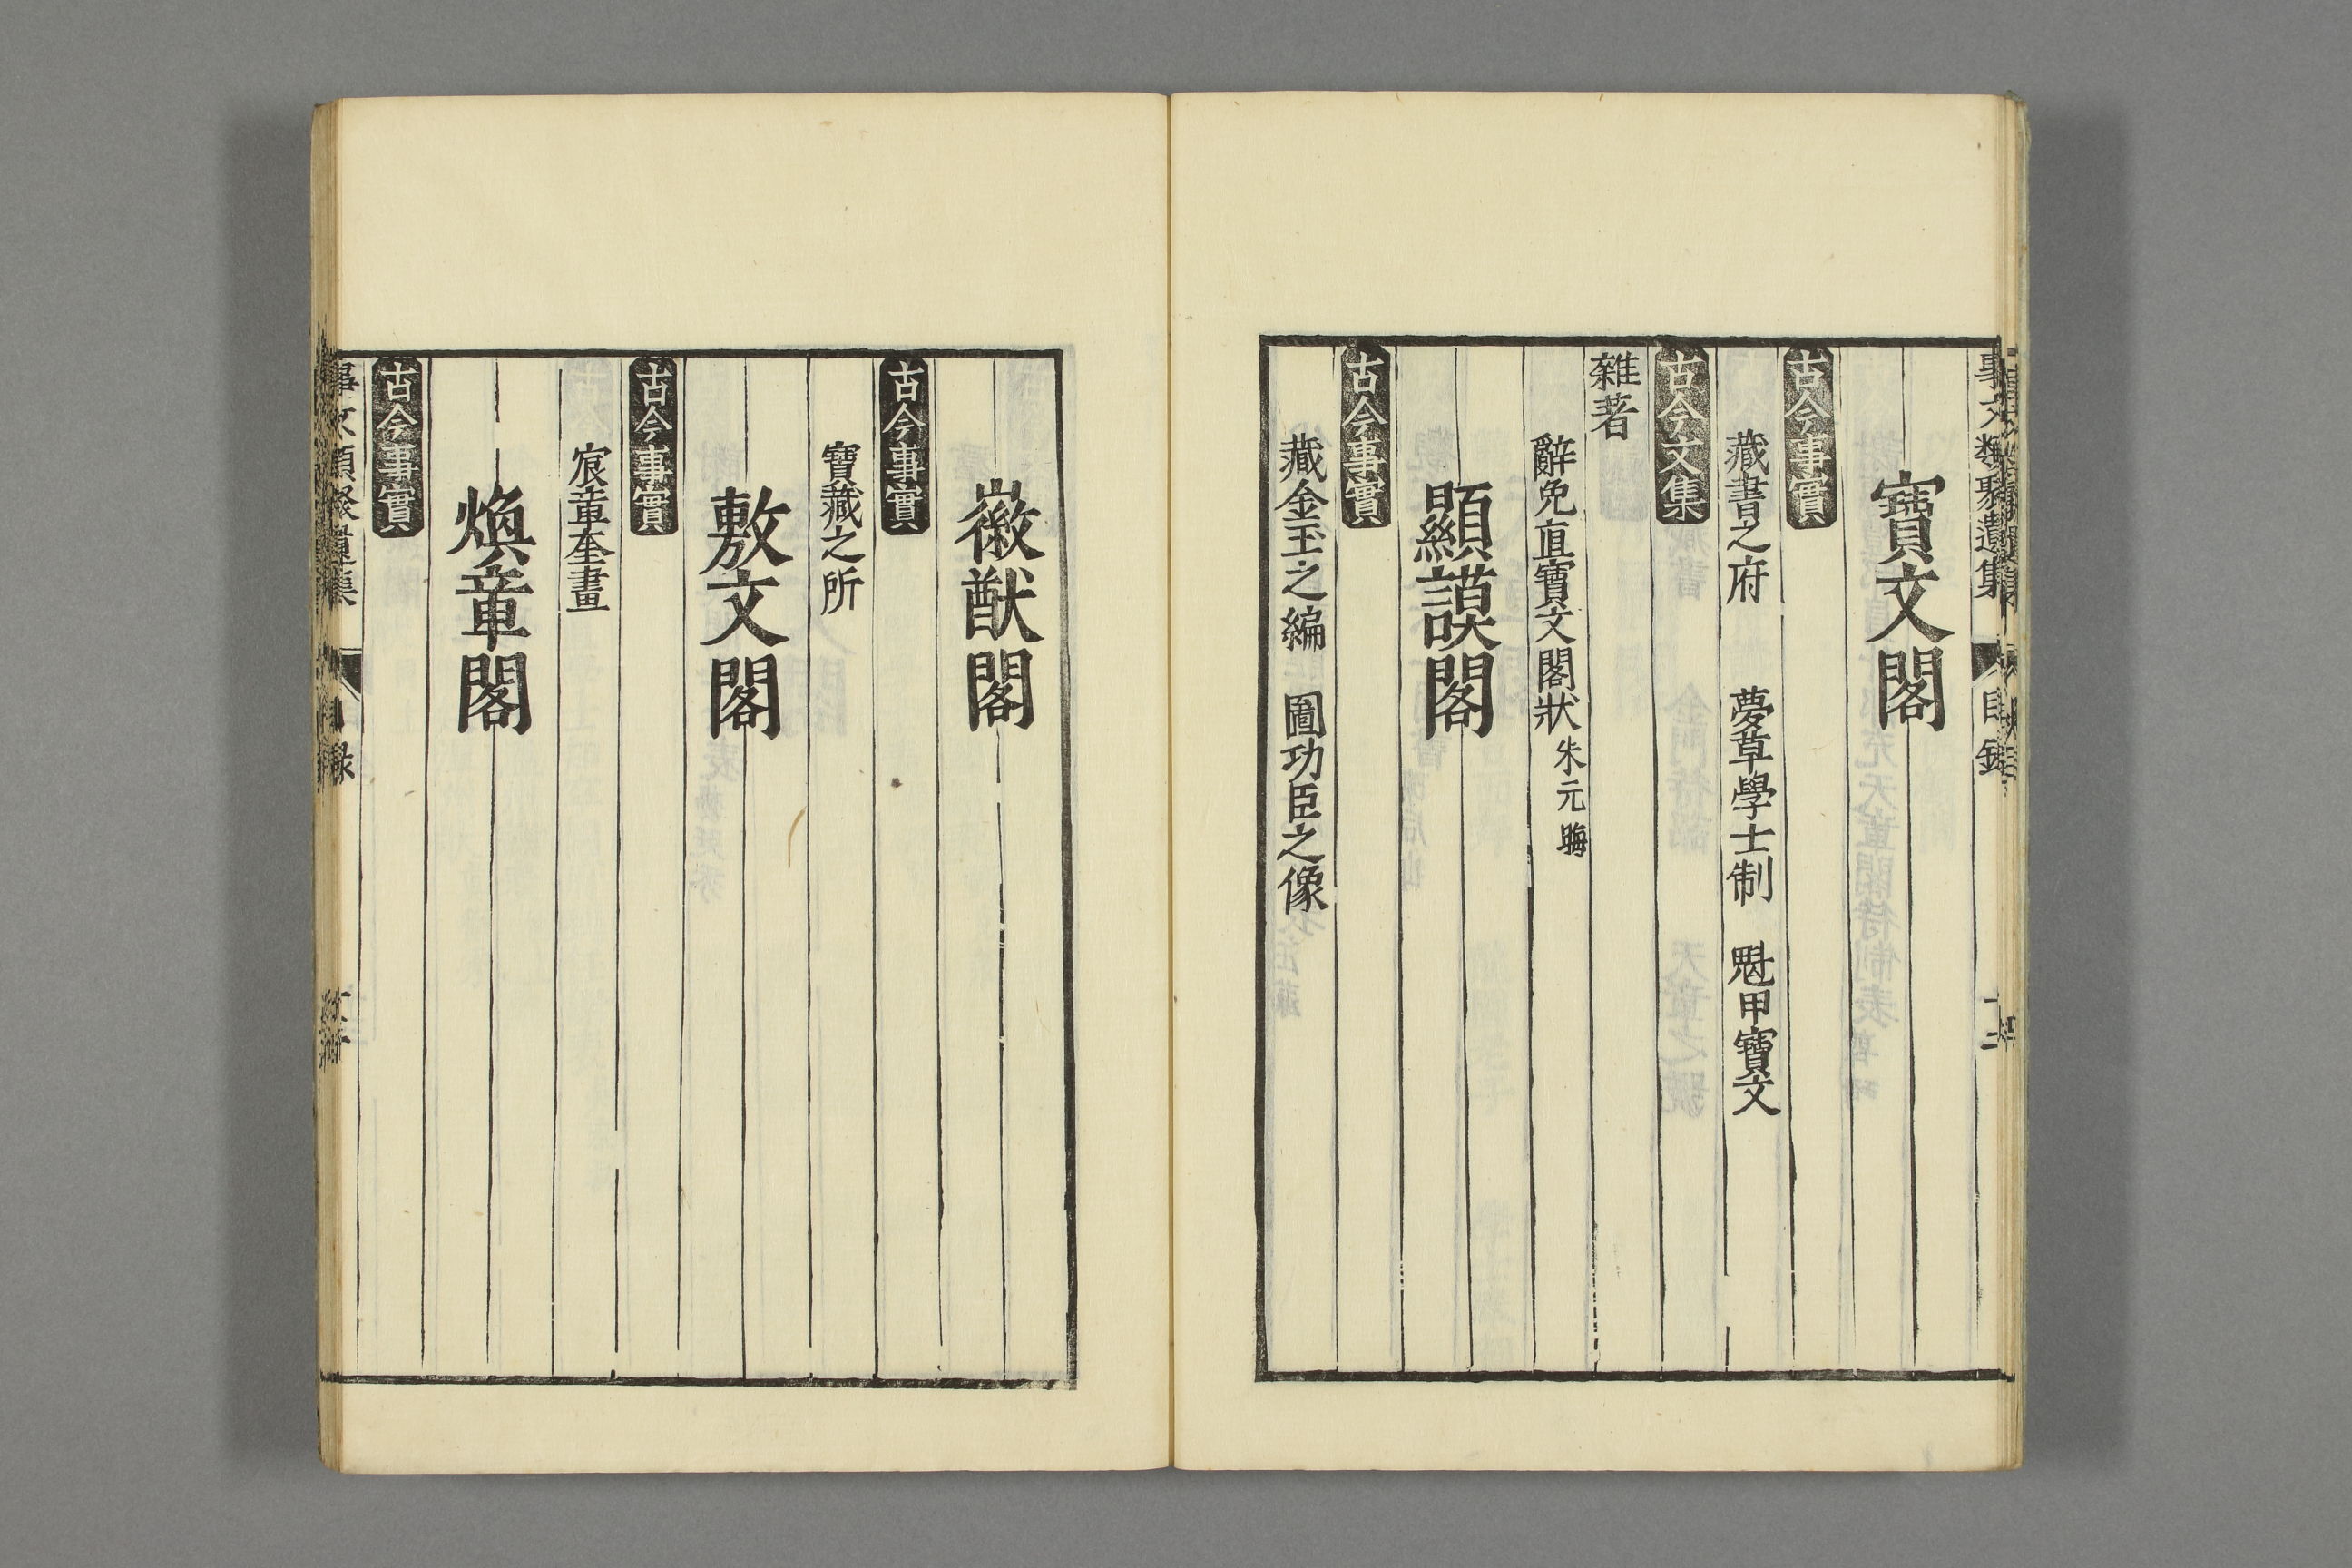 事文類聚遺集 目錄
寶文閣
古今事實
藏書之府 夢草學士制 魁甲寶文
古今文集
雜著
辭免直寶文閣狀 朱元晦
顯謨閣
古今事實
藏金玉之編 圖功臣之像
徽猷閣
古今事實
寶藏之所
敷文閣
古今事實
宸章奎畫
煥章閣
古今事實
事文類聚遺集 目錄